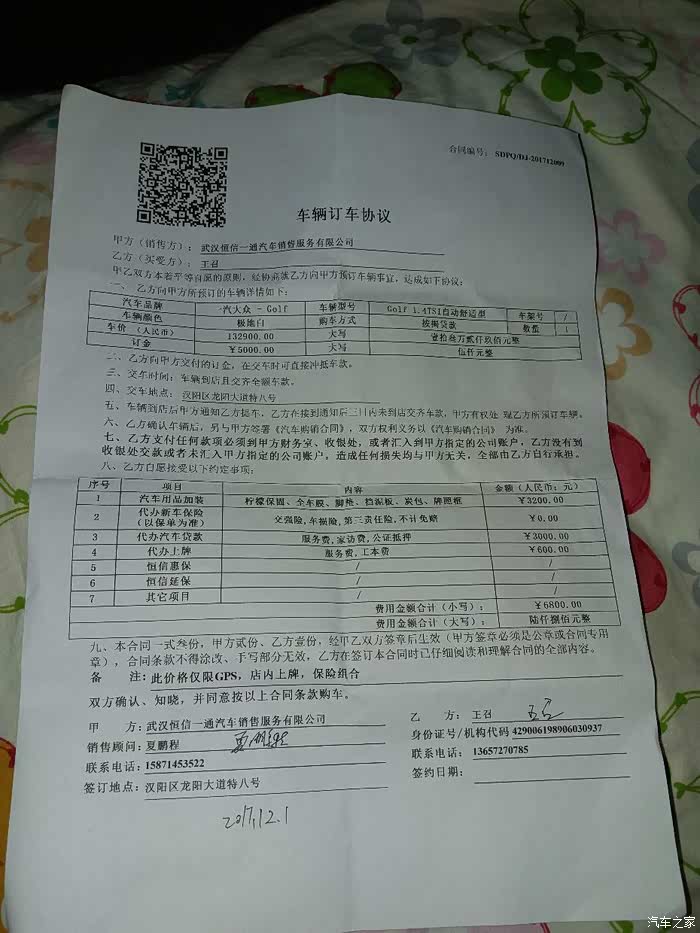 合同编号： SDPQ/DJ-201712009
车辆订车协议
甲方（销售方）：武汉恒信一通汽车销售服务有限公司
乙方（买受方）：王召
甲乙双方本着平等自愿的原则，经协商就乙方向甲方预订车辆事宜，达成如下协议：
一、 乙方向甲方所预订的车辆详情如下：
汽车品牌 一汽大众 - Golf 车辆型号 Golf 1.4TSI自动舒适型 车架号 /
车辆颜色 极地白 购车方式 按揭贷款 数量 1
车价 （人民币） 132900.00 大写 壹拾叁万贰仟玖佰元整
订金 ￥5000.00 大写 伍仟元整
二、乙方向甲方交付的订金，在交车时可直接冲抵车款。
三、交车时间：车辆到店且交齐全额车款。
四、交车地点： 汉阳区龙阳大道特八号
五、车辆到店后甲方通知乙方提车，乙方在接到通知后三日内未到店交齐车款，甲方有权处 现乙方所预订车辆。
六、乙方确认车辆后，另与甲方签署《汽车购销合同》，双方权利义务以《汽车购销合同》 为准。
七、乙方支付任何款项必须到甲方财务室、收银处，或者汇入到甲方指定的公司账户，乙方没有到
收银处交款或者未汇入甲方指定的公司账户，造成任何损失均与甲方无关，全部由乙方自行承担。
八、乙方自愿接受以下约定事项：
序号 项目 内容 金额（人民币：元）
1 汽车用品加装 柠檬保固、全车膜、脚垫、挡泥板、炭包、牌照框 ￥3200.00
2 代办新车保险（以保单为准） 交强险,车损险,第三责任险,不计免赔 ￥0.00
3 代办汽车贷款 服务费,家访费,公证抵押 ￥3000.00
4 代办上牌 服务费,工本费 ￥600.00
5 恒信惠保 / /
6 恒信延保 / /
7 其它项目 / /
费用金额合计（小写）： ￥6800.00
费用金额合计（大写）： 陆仟捌佰元整
九、本合同一式叁份，甲方贰份、乙方壹份，经甲乙双方签章后生效（甲方签章必须是公章或合同专用
章），合同条款不得涂改、手写部分无效，乙方在签订本合同时已仔细阅读和理解合同的全部内容。
备 注：此价格仅限GPS，店内上牌，保险组合
双方确认、知晓，并同意按以上合同条款购车。
甲 方：武汉恒信一通汽车销售服务有限公司
乙 方：王召 王召
销售顾问：夏鹏程 夏鹏程
身份证号/机构代码 429006198906030937
联系电话：15871453522
联系电话： 13657270785
签订地点：汉阳区龙阳大道特八号
签约日期：
2017.12.1
汽车之家